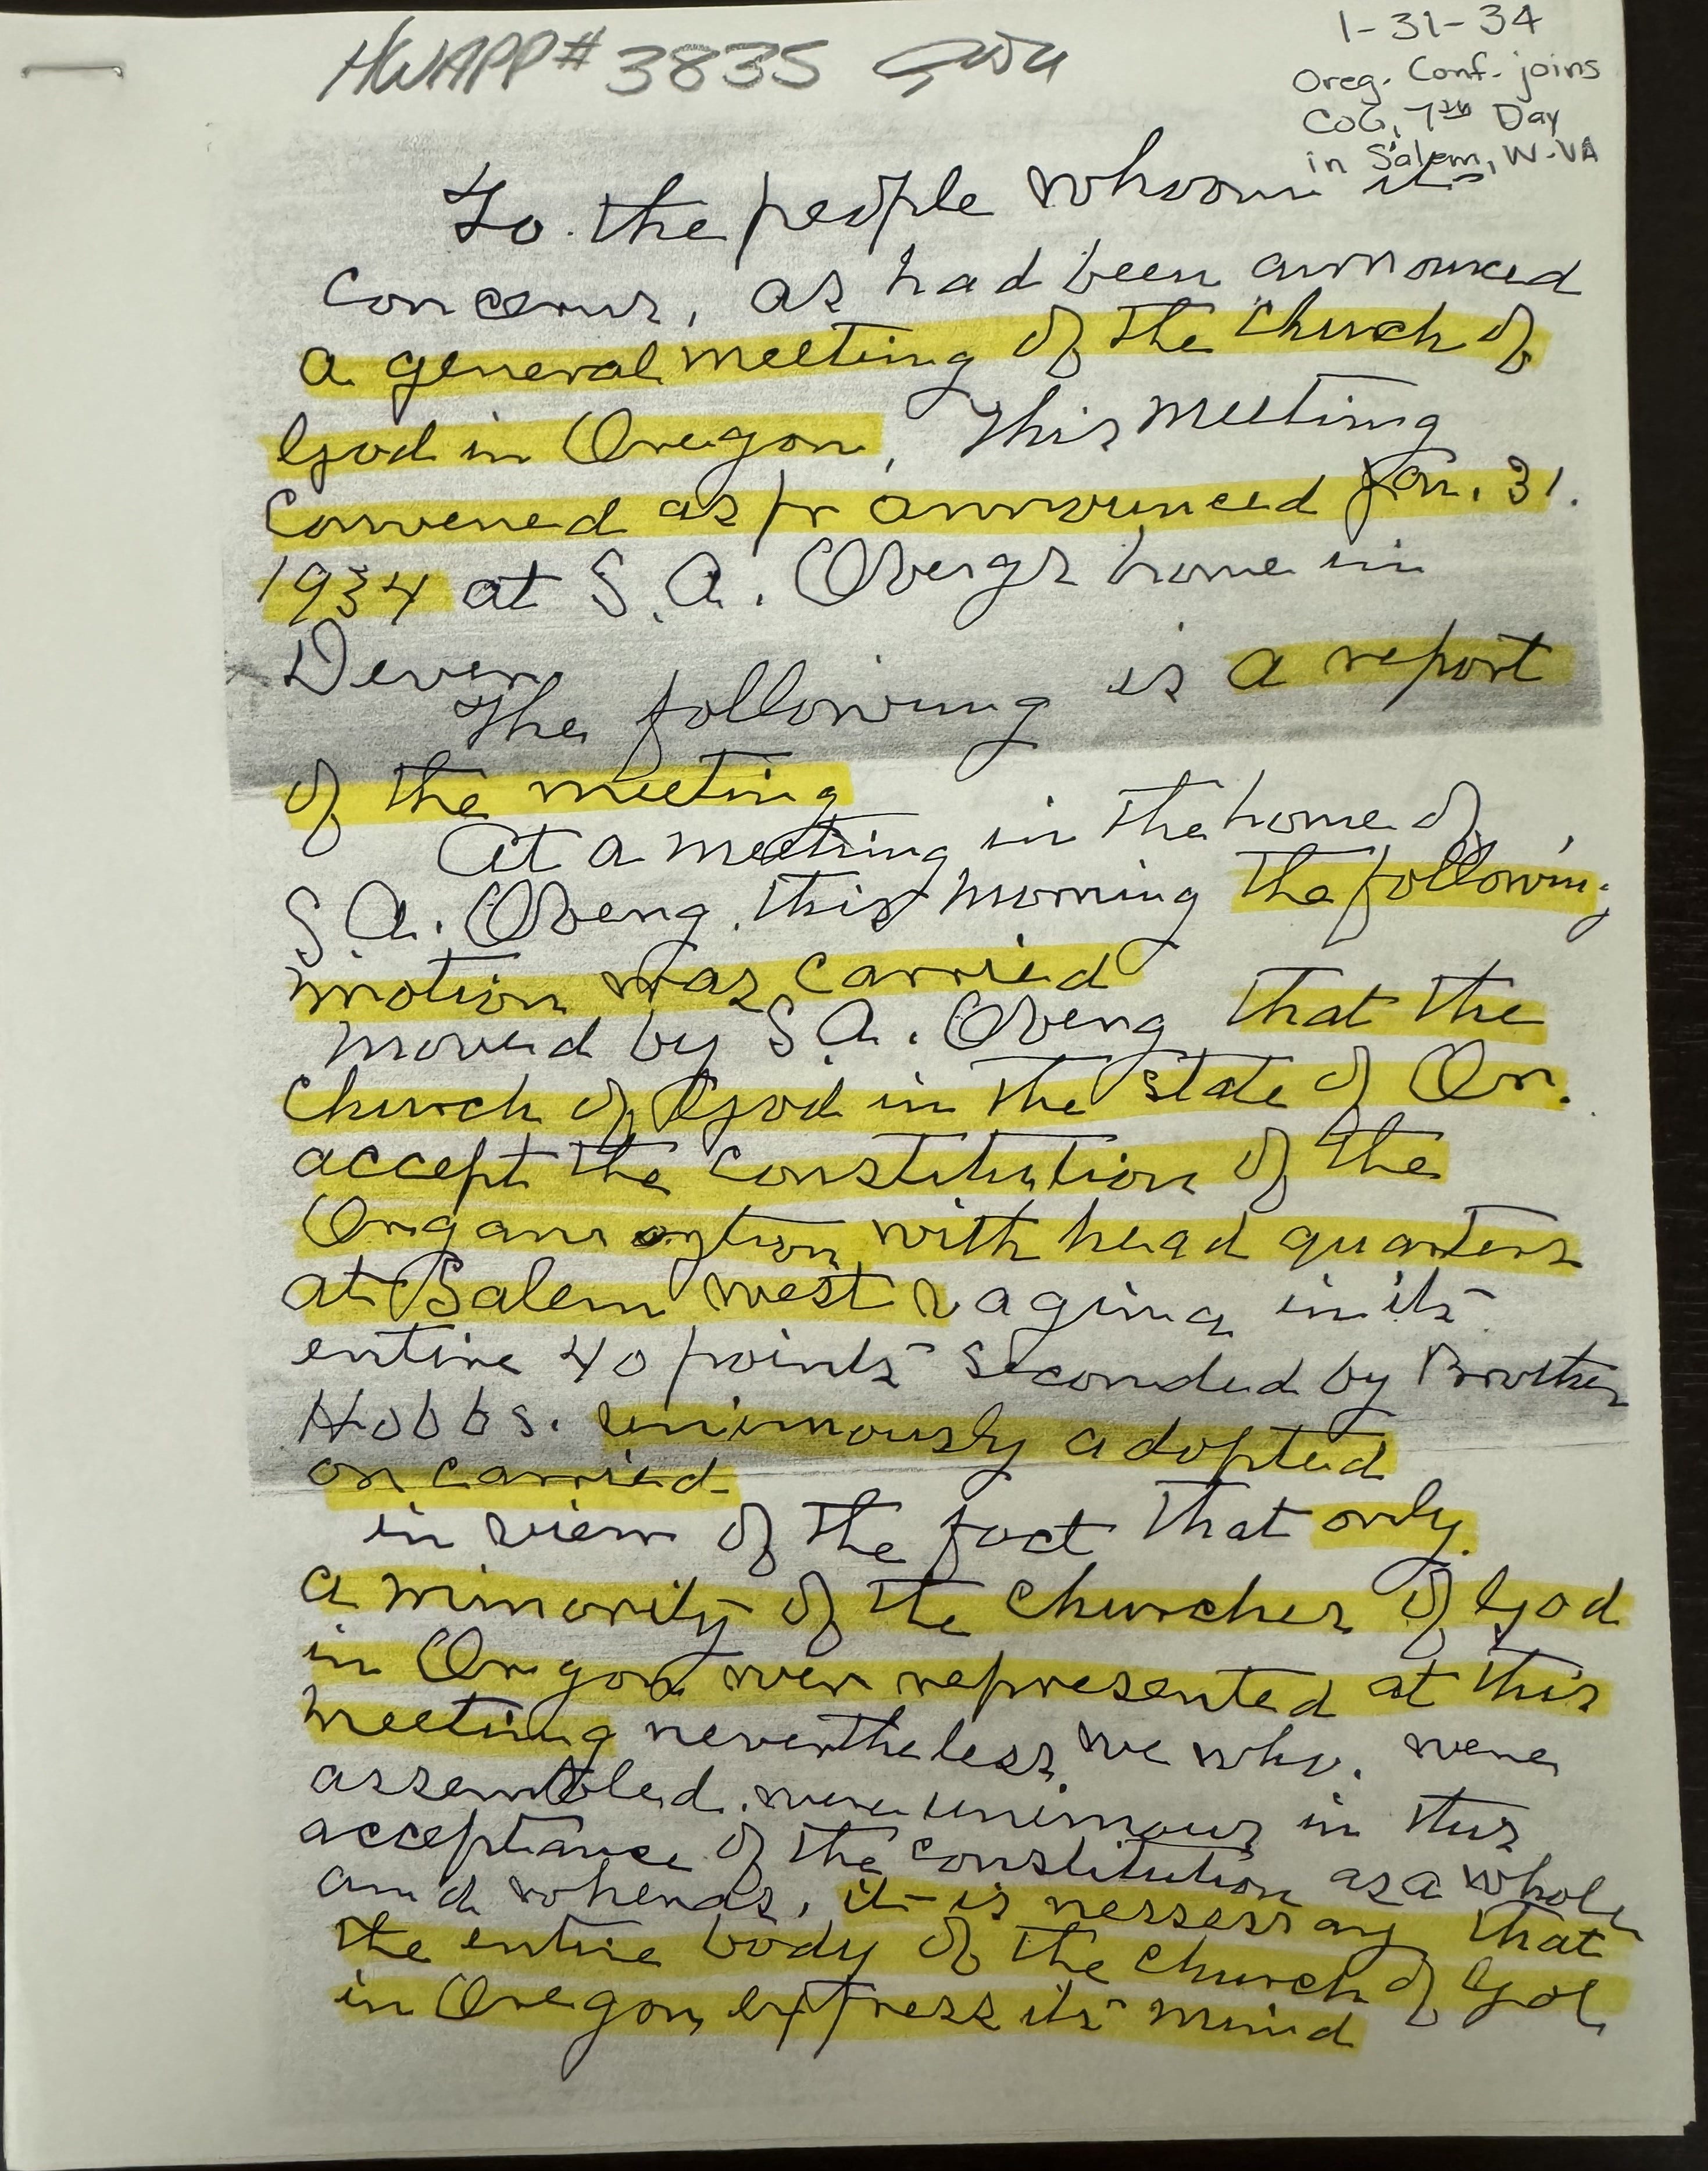 HWAPP# 3835
1-31-34
Oreg. Conf. joins
CoG, 7th Day
in Salem, W-VA
To the people whoom it
concerns, as had been announced
a general meeting of the church of
God in Oregon, This meeting
Convened as pr announced Jan. 31.
1934 at S.A. Obergs home in
Dever
The following is a report
of the meeting
At a meeting in the home of
S.A. Oberg, this morning the following
motion was carried
moved by S.A. Oberg that the
Church of God in the state of Or.
accept the constitution of the
Organization with head quarters
at Salem west vagina in its
entire 40 points seconded by Brother
Hobbs. unimously adopted
or carried
in view of the fact that only
a minority of the churches of God
in Oregon wer represented at this
meeting nevertheless, we who. were
assembled. were unimous in this
acceptance of the constitution as a whole
and wheras, it is nessessary that
the entire body of the church of God
in Oregon, express its mind